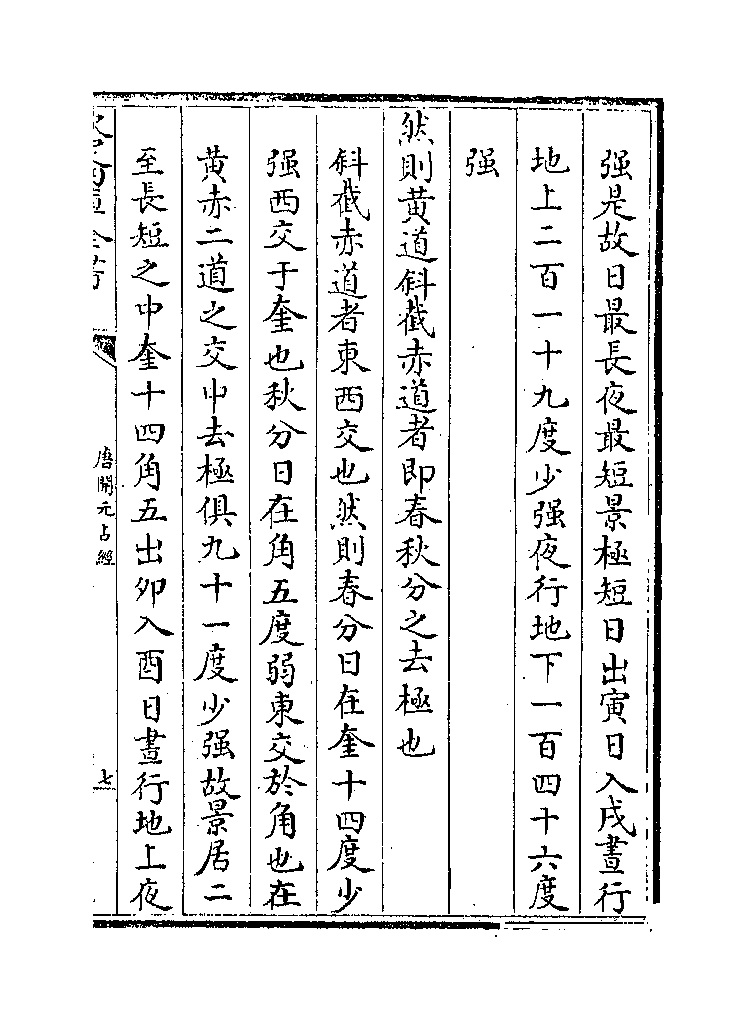 强是故日最長夜最短景極短日出寅日入戌晝行
地上二百一十九度少强夜行地下一百四十六度
强
然則黄道斜截赤道者即春秋分之去極也
斜截赤道者東西交也然則春分日在奎十四度少
强西交于奎也秋分日在角五度弱東交於角也在
黄赤二道之交中去極俱九十一度少强故景居二
至長短之中奎十四角五出夘入酉日晝行地上夜
唐開元占經
七